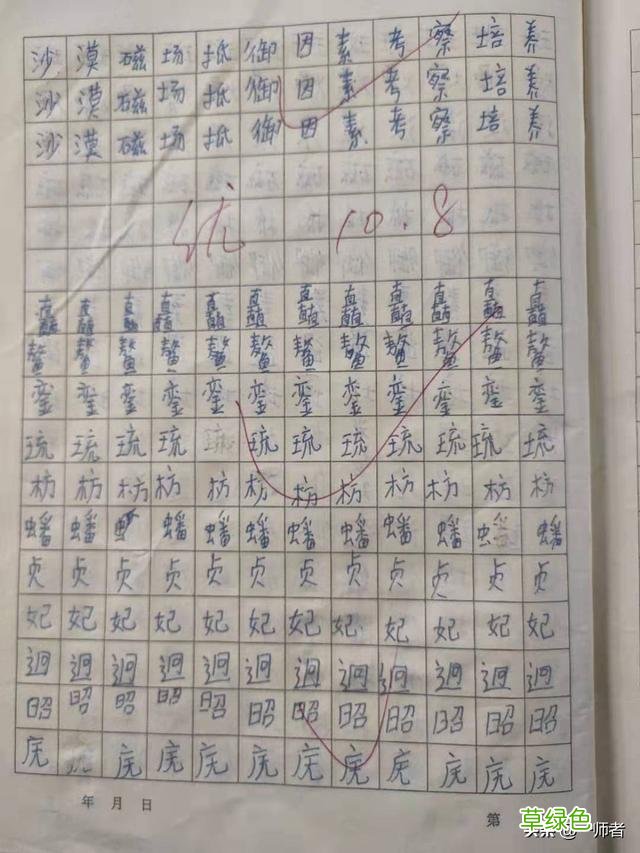 沙漠磁场抵御因素考察培养
沙漠磁场抵御因素考察培养
沙漠磁场抵御因素考察培养
优 10.8
矗矗矗矗矗矗矗矗矗矗矗矗
鳌鳌鳌鳌鳌鳌鳌鳌鳌鳌鳌鳌
銮銮銮銮銮銮銮銮銮銮銮銮
琉琉琉琉琉琉琉琉琉琉琉
枋枋枋枋枋枋枋枋枋枋枋枋
蟠蟠蟠蟠蟠蟠蟠蟠蟠蟠蟠
贞贞贞贞贞贞贞贞贞贞贞贞
妃妃妃妃妃妃妃妃妃妃妃妃
迥迥迥迥迥迥迥迥迥迥迥迥
昭昭昭昭昭昭昭昭昭昭昭昭
庑庑庑庑庑庑庑庑庑庑庑
年 月 日
第
草绿色
师者